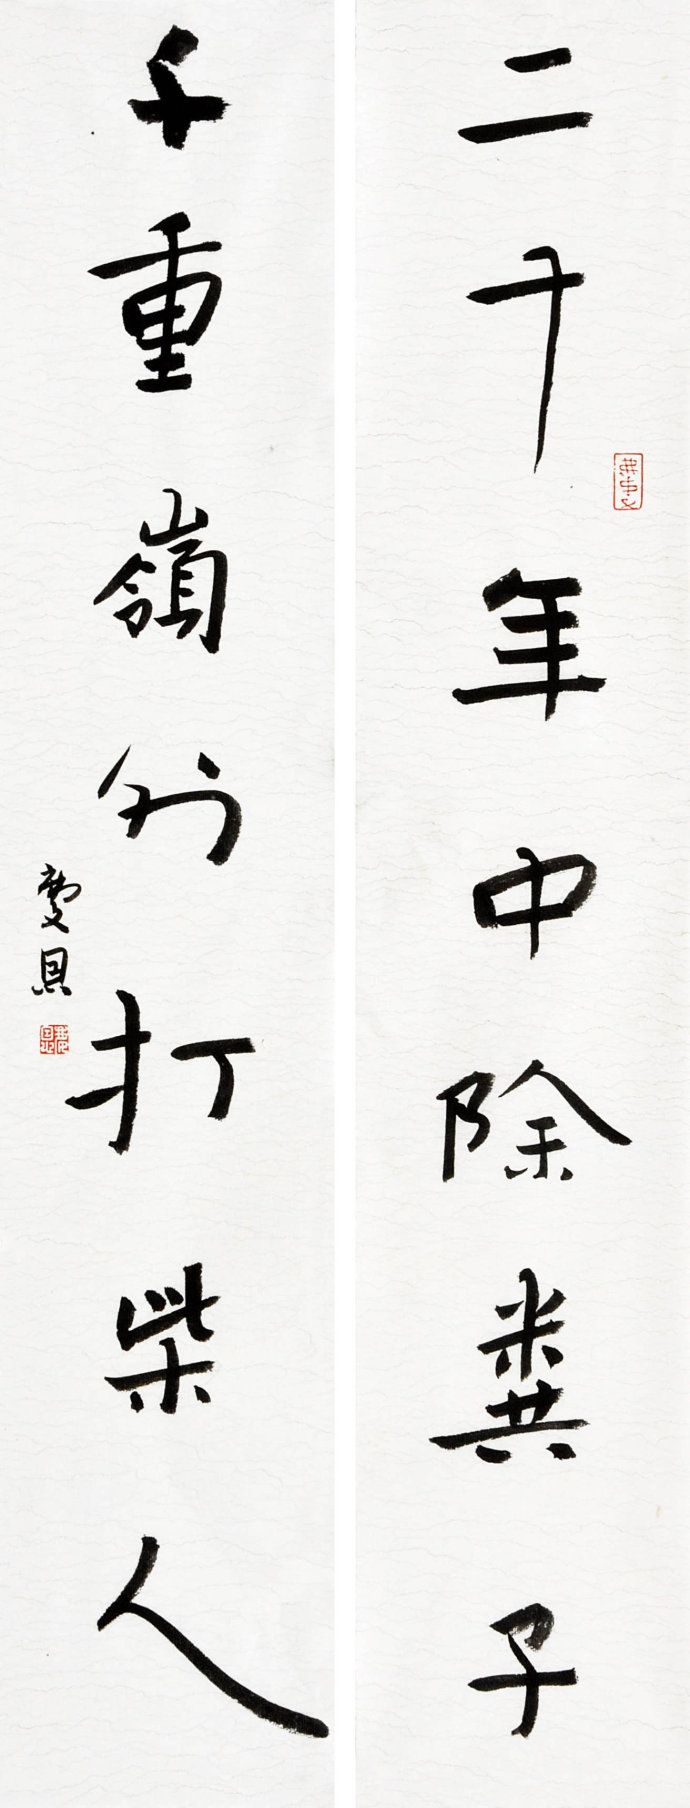 二十年中除糞子
千重嶺外打柴人